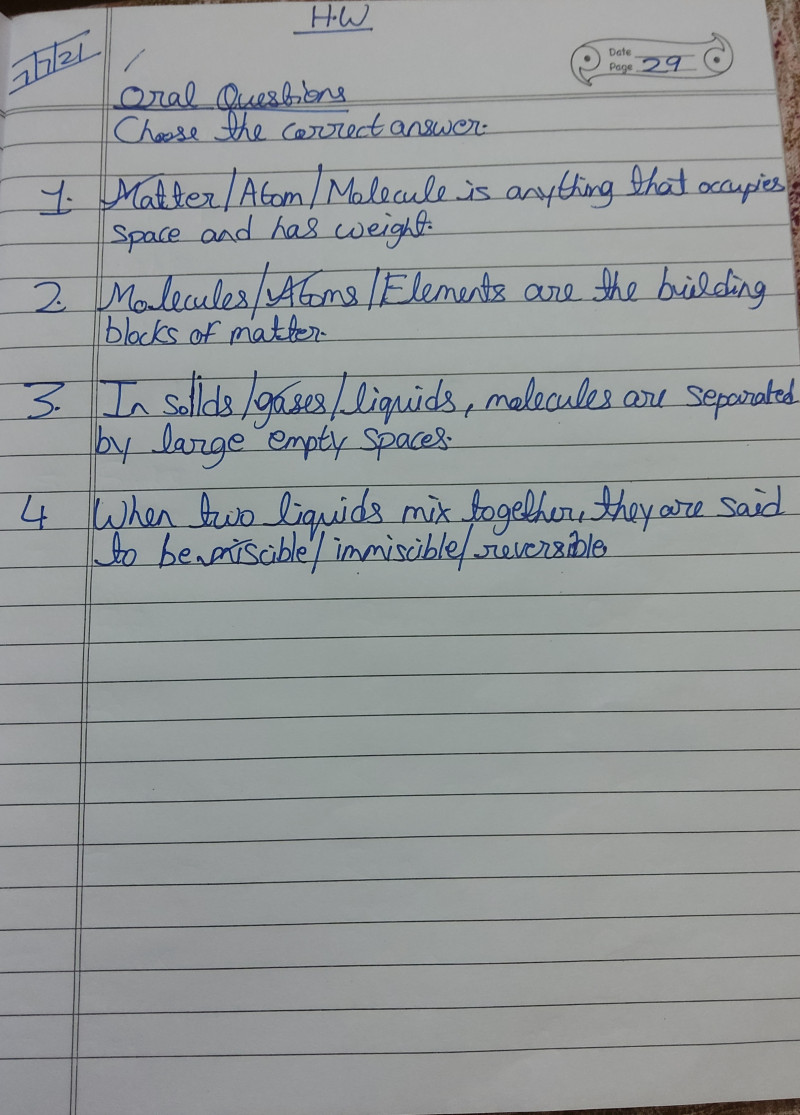 H.W
7/7/21
Date
Page 29
Oral Questions
Choose the correct answer.
1. Matter/Atom/Molecule is anything that occupies
space and has weight.
2. Molecules/Atoms/Elements are the building
blocks of matter.
3. In solids/gases/liquids, molecules are separated
by large empty spaces.
4 When two liquids mix together, they are said
to be miscible/immiscible/reversible